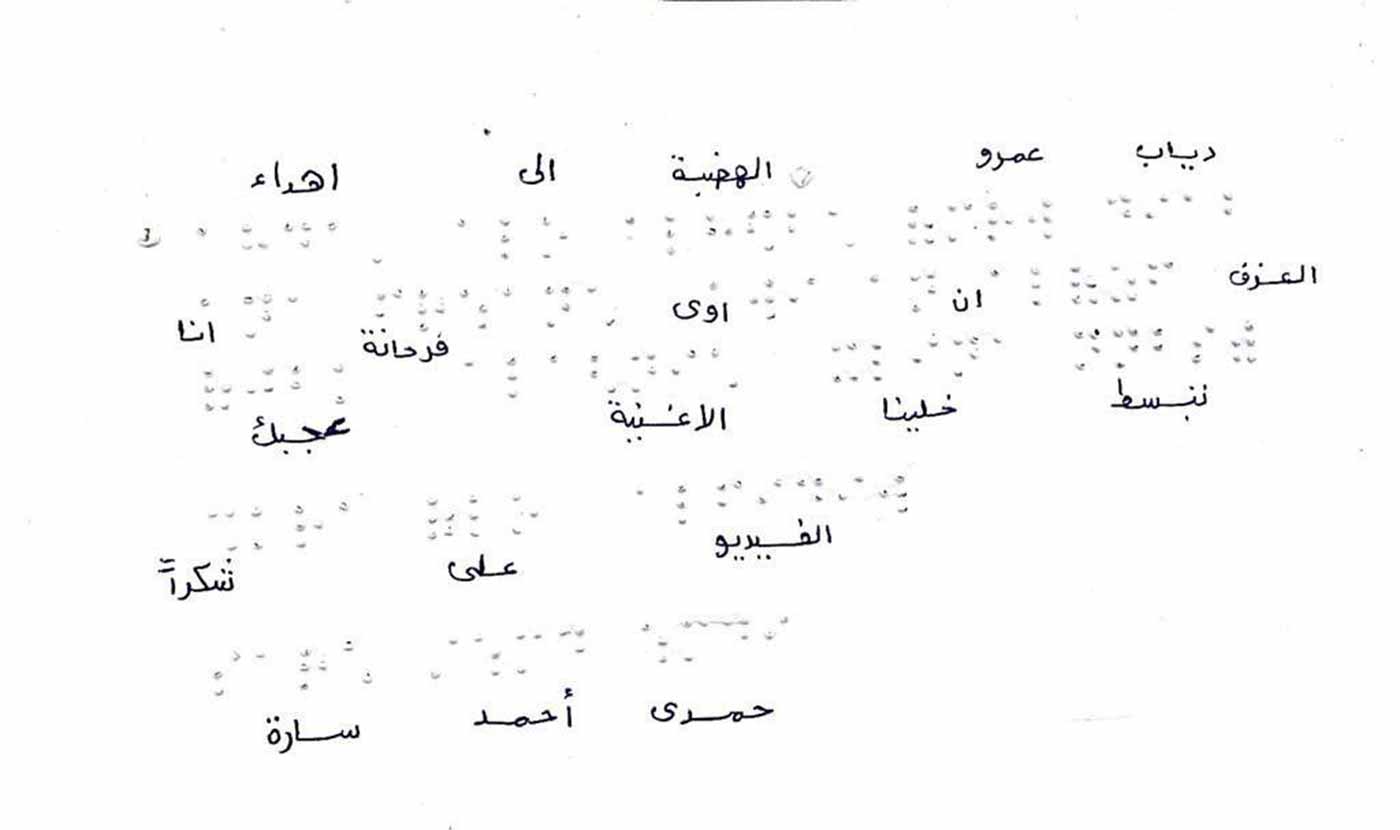 اهداء الى الهضبة عمرو دياب
انا فرحانة اوى ان العزف
عجبك الاغنية خلينا ننبسط
شكراً على الفيديو
سارة أحمد حمدى